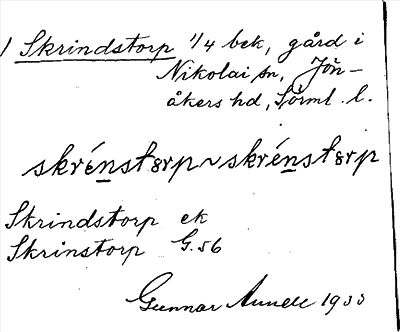 / Skrindstorp 1/4 bek, gård i
Nikolai sn, Jön-
åkers hd, Sörml. l.
skrénstørp ~ skrénstørp
Skrindstorp ek
Skrinstorp G.56
Gunnar 1933